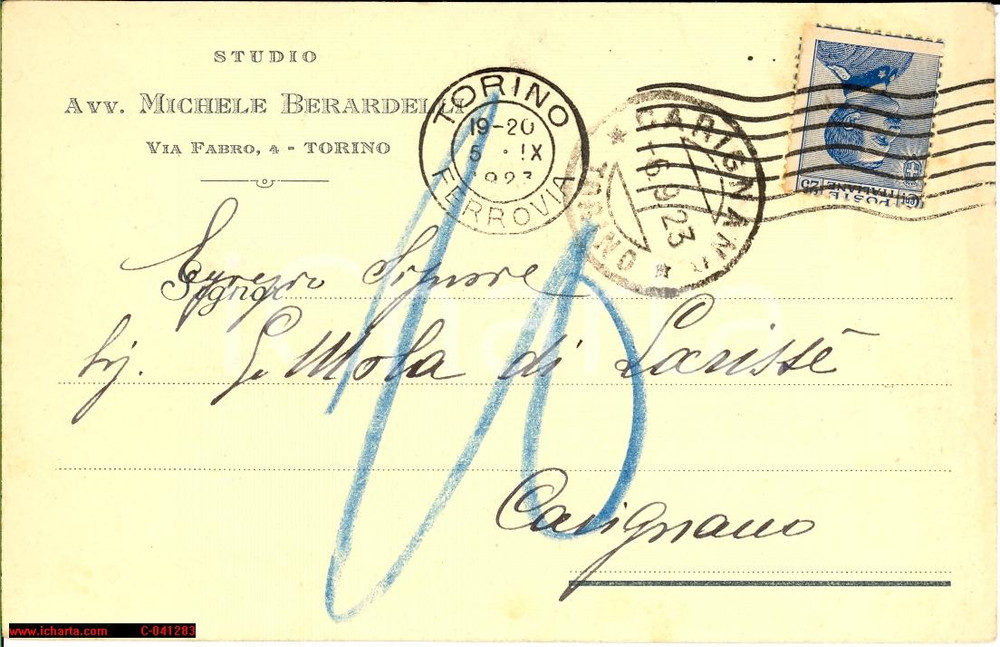 STUDIO
AVV. MICHELE BERARDELLI
VIA FABRO, 4 - TORINO
TORINO
19-20
5 · IX
923
FERROVIA
CARIGNANO
-6.9.23
TORINO
POSTE ITALIANE
25
Egregio Signore
Signor
G. Mola di Larissè
Carignano
icharta
www.icharta.com C-041283